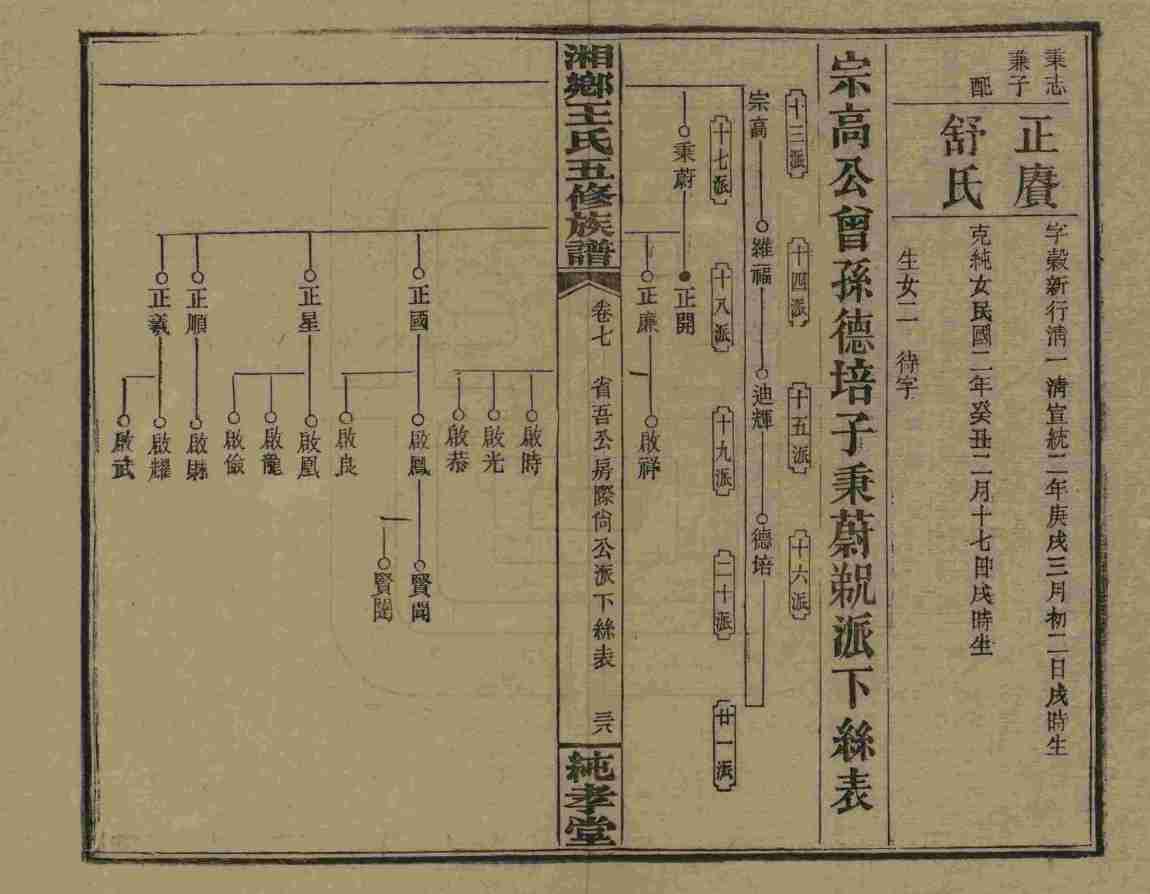 秉志
兼子
配
正賡
舒氏
字穀新行淸一淸宣統二年庚戌三月初二日戌時生
克純女民國二年癸丑二月十七日戌時生
生女二 待字
宗高公曾孫德培子秉蔚派下絲表
十三派
十四派
十五派
十六派
宗高
維福
迪輝
德培
十七派
十八派
十九派
二十派
廿一派
秉蔚
正開
正廉
啟祥
湘鄉王氏五修族譜
卷七 省吾公房際尙公派下絲表
三六
純孝堂
啟時
啟光
啟恭
正國
啟鳳
賢聞
啟良
正星
啟凰
啟龍
啟儉
正順
正羲
啟耀
啟武